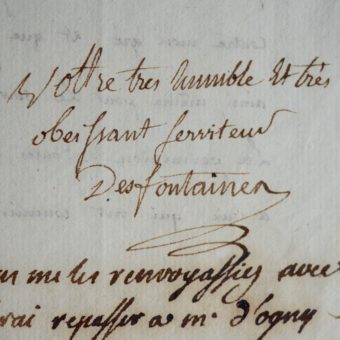 Vottre tres humble Et trés
obeissant serviteur
Desfontaines
me les renvoyassiez avec
repasser a mr d'ogny